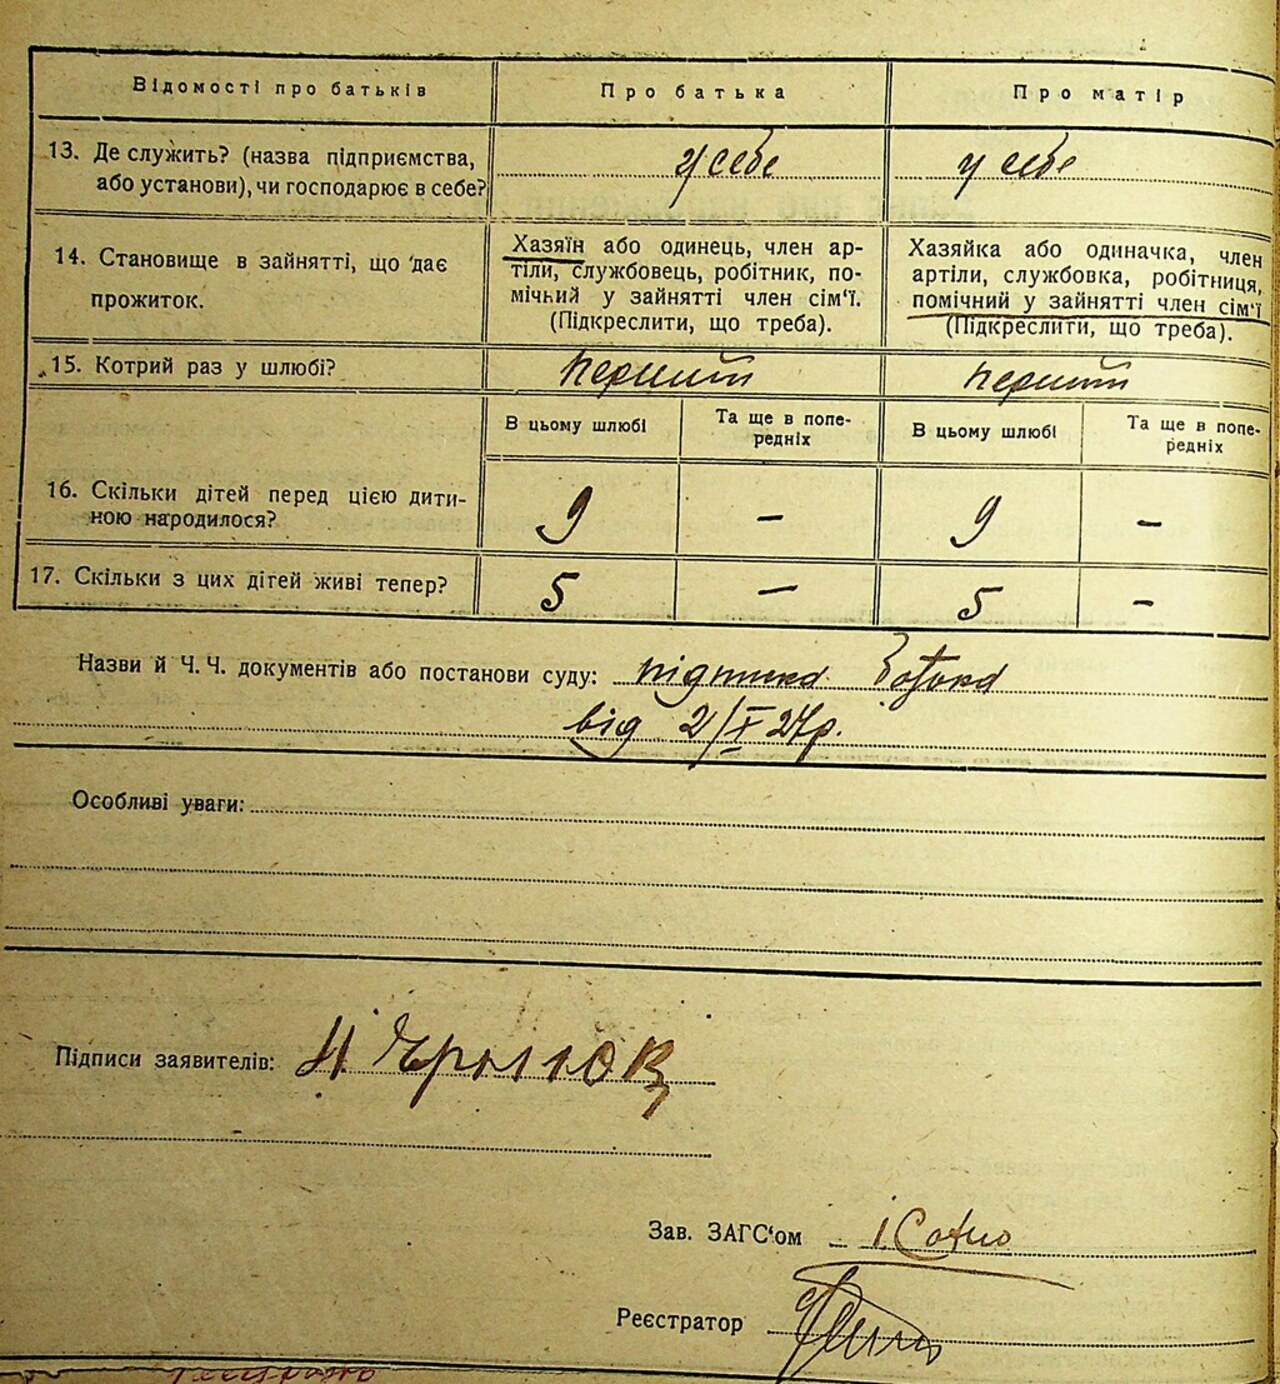 Відомості про батьків
Про батька
Про матір
13. Де служить? (назва підприємства,
або установи), чи господарює в себе?
у себе
у себе
14. Становище в зайнятті, що дає
прожиток.
Хазяїн або одинець, член ар-
тіли, службовець, робітник, по-
мічний у зайнятті член сім'ї.
(Підкреслити, що треба).
Хазяйка або одиначка, член
артіли, службовка, робітниця,
помічний у зайнятті член сім'ї
(Підкреслити, що треба).
15. Котрий раз у шлюбі?
перший
перший
В цьому шлюбі
Та ще в попе-
редніх
В цьому шлюбі
Та ще в попе-
редніх
16. Скільки дітей перед цією дити-
ною народилося?
9
–
9
–
17. Скільки з цих дітей живі тепер?
5
–
5
–
Назви й Ч. Ч. документів або постанови суду:
від 2/X 27р.
Особливі уваги:
Підписи заявителів:
Зав. ЗАГС'ом
Реєстратор